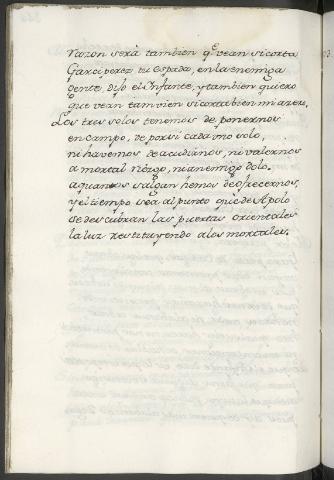 razon será tambien qe vean si corta
Garci perez tu espada, en la enemiga
gente, dijo el Infante, y tambien quiero
que vean tamvien si corta bien mi azero.
Los tres solos tenemos de ponernos
en campo, de por si cada uno solo,
ni havemos de acudirnos, ni valernos
a mortal riezgo, ni a enemigo dolo.
a quantos salgan hemos de ofrecernos,
y el tiempo sea al punto que de Apolo
se descubran las puertas orientales
la luz restituyendo a los mortales.